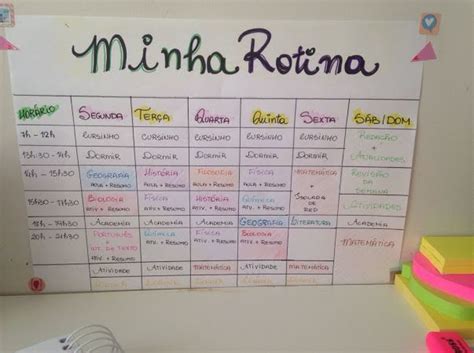 Minha Rotina
HORÁRIO SEGUNDA TERÇA QUARTA QUINTA SEXTA SÁB/DOM
7h - 12h CURSINHO CURSINHO CURSINHO CURSINHO CURSINHO REDAÇÃO
+
13h30 - 14h DORMIR DORMIR DORMIR DORMIR DORMIR ATUALIDADES
14h - 15h30 GEOGRAFIA HISTÓRIA FILOSOFIA FÍSICA MATEMÁTICA REVISÃO DA
AULA + RESUMO AULA + RESUMO AULA + RESUMO AULA + RESUMO + SEMANA
BIOLOGIA FÍSICA HISTÓRIA QUÍMICA ISOLADA DE ATIVIDADES
ATIV. + RESUMO ATIV. + RESUMO ATIV. + RESUMO ATIV. + RESUMO RED
ACADEMIA ACADEMIA ACADEMIA GEOGRAFIA LITERATURA ACADEMIA
20h - 21h30 PORTUGUÊS QUÍMICA FÍSICA BIOLOGIA MATEMÁTICA
+ ATIV. + RESUMO ATIV. + RESUMO ATIV. + RESUMO
INT. DE TEXTO
ATIV. + RESUMO
ATIVIDADE ATIVIDADE MATEMÁTICA ATIVIDADE MATEMÁTICA